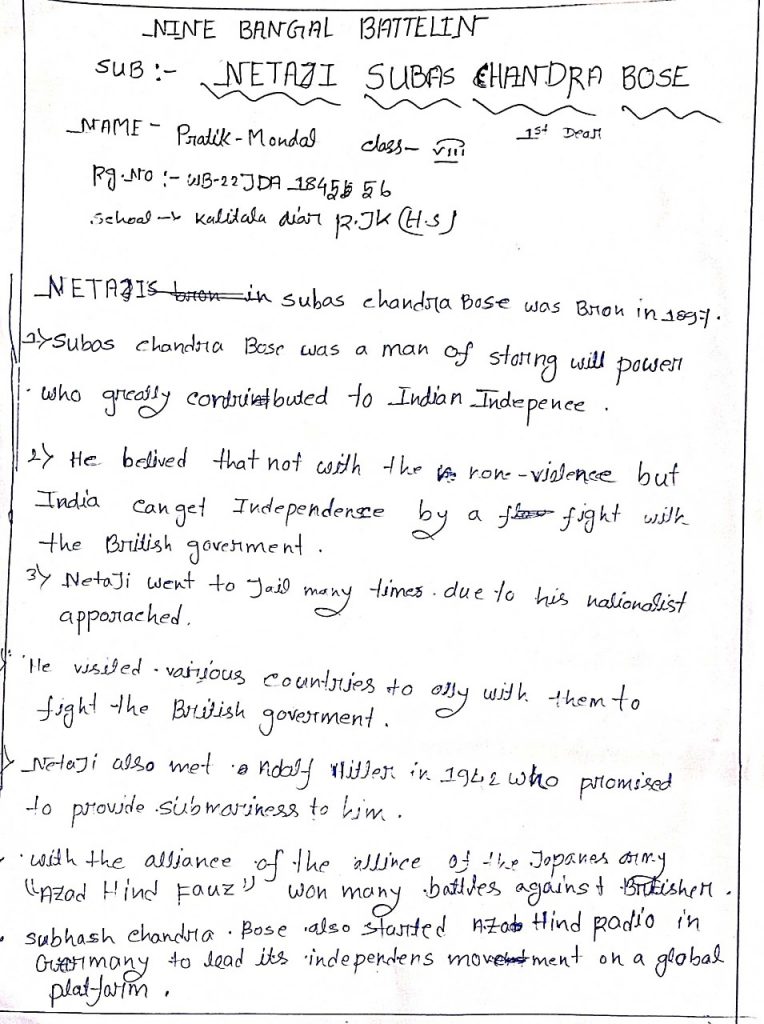 NINE BANGAL BATTELIN
SUB :- NETAJI SUBAS CHANDRA BOSE
NAME - Pratik - Mondal class - VIII 1st Dear
Rg. No :- WB-22JDA 1845 56
School → Kalitala diar R.JK (H.S)
NETAJIS bron in subas chandra Bose was Bron in 1897.
1) Subas chandra Bose was a man of storing will power
who greatly contributed to Indian Indepence .
2) He belived that not with the non-violence but
India can get Independence by a fight with
the British goverment .
3) NetaJi went to Jail many times . due to his nationalist
apporached.
He visited various countries to ally with them to
fight the British goverment .
NetaJi also met Hitler in 1942 who promised
to provide submariness to him .
with the alliance of the allince of the Japanes army
"Azad Hind Fauz" won many battles against Britisher .
subhash chandra . Bose also started Azad Hind Radio in
Guermany to lead its independens movement on a global
platfarm .